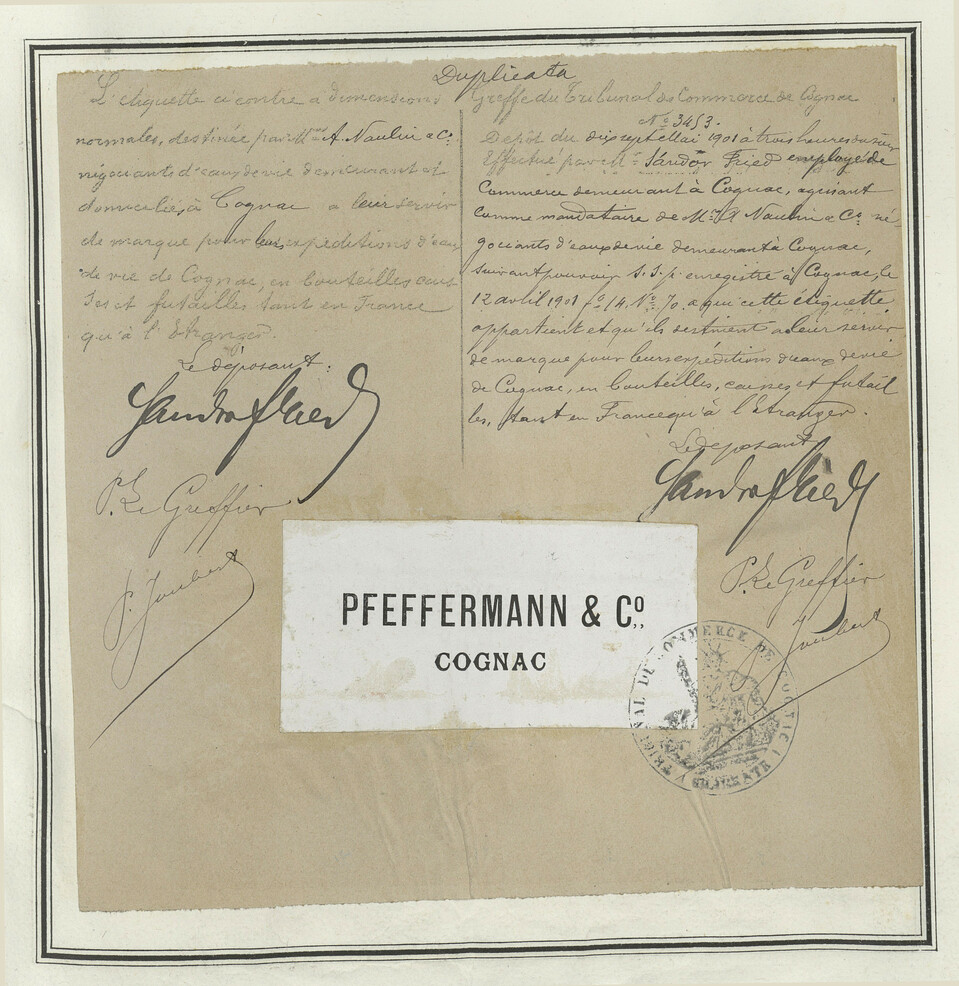 Duplicata
L'étiquette ci contre a dimensions
normales, destinée par MM. A. Naulin & Co.
négociants d'eaux de vie demeurant et
domiciliés, à Cognac a leur servir
de marque pour leurs expéditions d'eau
de vie de Cognac, en bouteilles cais
ses et futailles tant en France
qu'à l'Etranger.
Le déposant:
Sandor Fried
P. Le Greffier
P. Joubert
Greffe du Tribunal de Commerce de Cognac
No 3453.
Dépôt du dix sept Mai 1901 à trois heures du soir
Effectué par Mr Sándor Fried employé de
Commerce demeurant à Cognac, agissant
comme mandataire de MM. A Naulin & Co. né
gociants d'eaux de vie demeurant à Cognac,
suivant pouvoir s.s.p. enregistré à Cognac, le
12 avril 1901 fo 14. No 70. a qui cette étiquette
appartient et qu'ils destinent a leur servir
de marque pour leurs expéditions d'eaux de vie
de Cognac, en bouteilles, caisses et futail
les, tant en France qu'à l'Etranger.
Le déposant
Sandor Fried
P. Le Greffier
Joubert
PFEFFERMANN & Co.
COGNAC
TRIBUNAL DU COMMERCE DE COGNAC